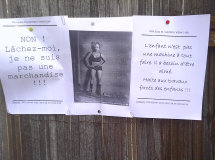 NON !
Lâchez-moi,
je ne suis
pas une
marchandise
!!!
L'enfant n'est pas
une machine à tout
faire. Il a besoin d'être
aimé.
Halte aux travaux
forcés des enfants !!!